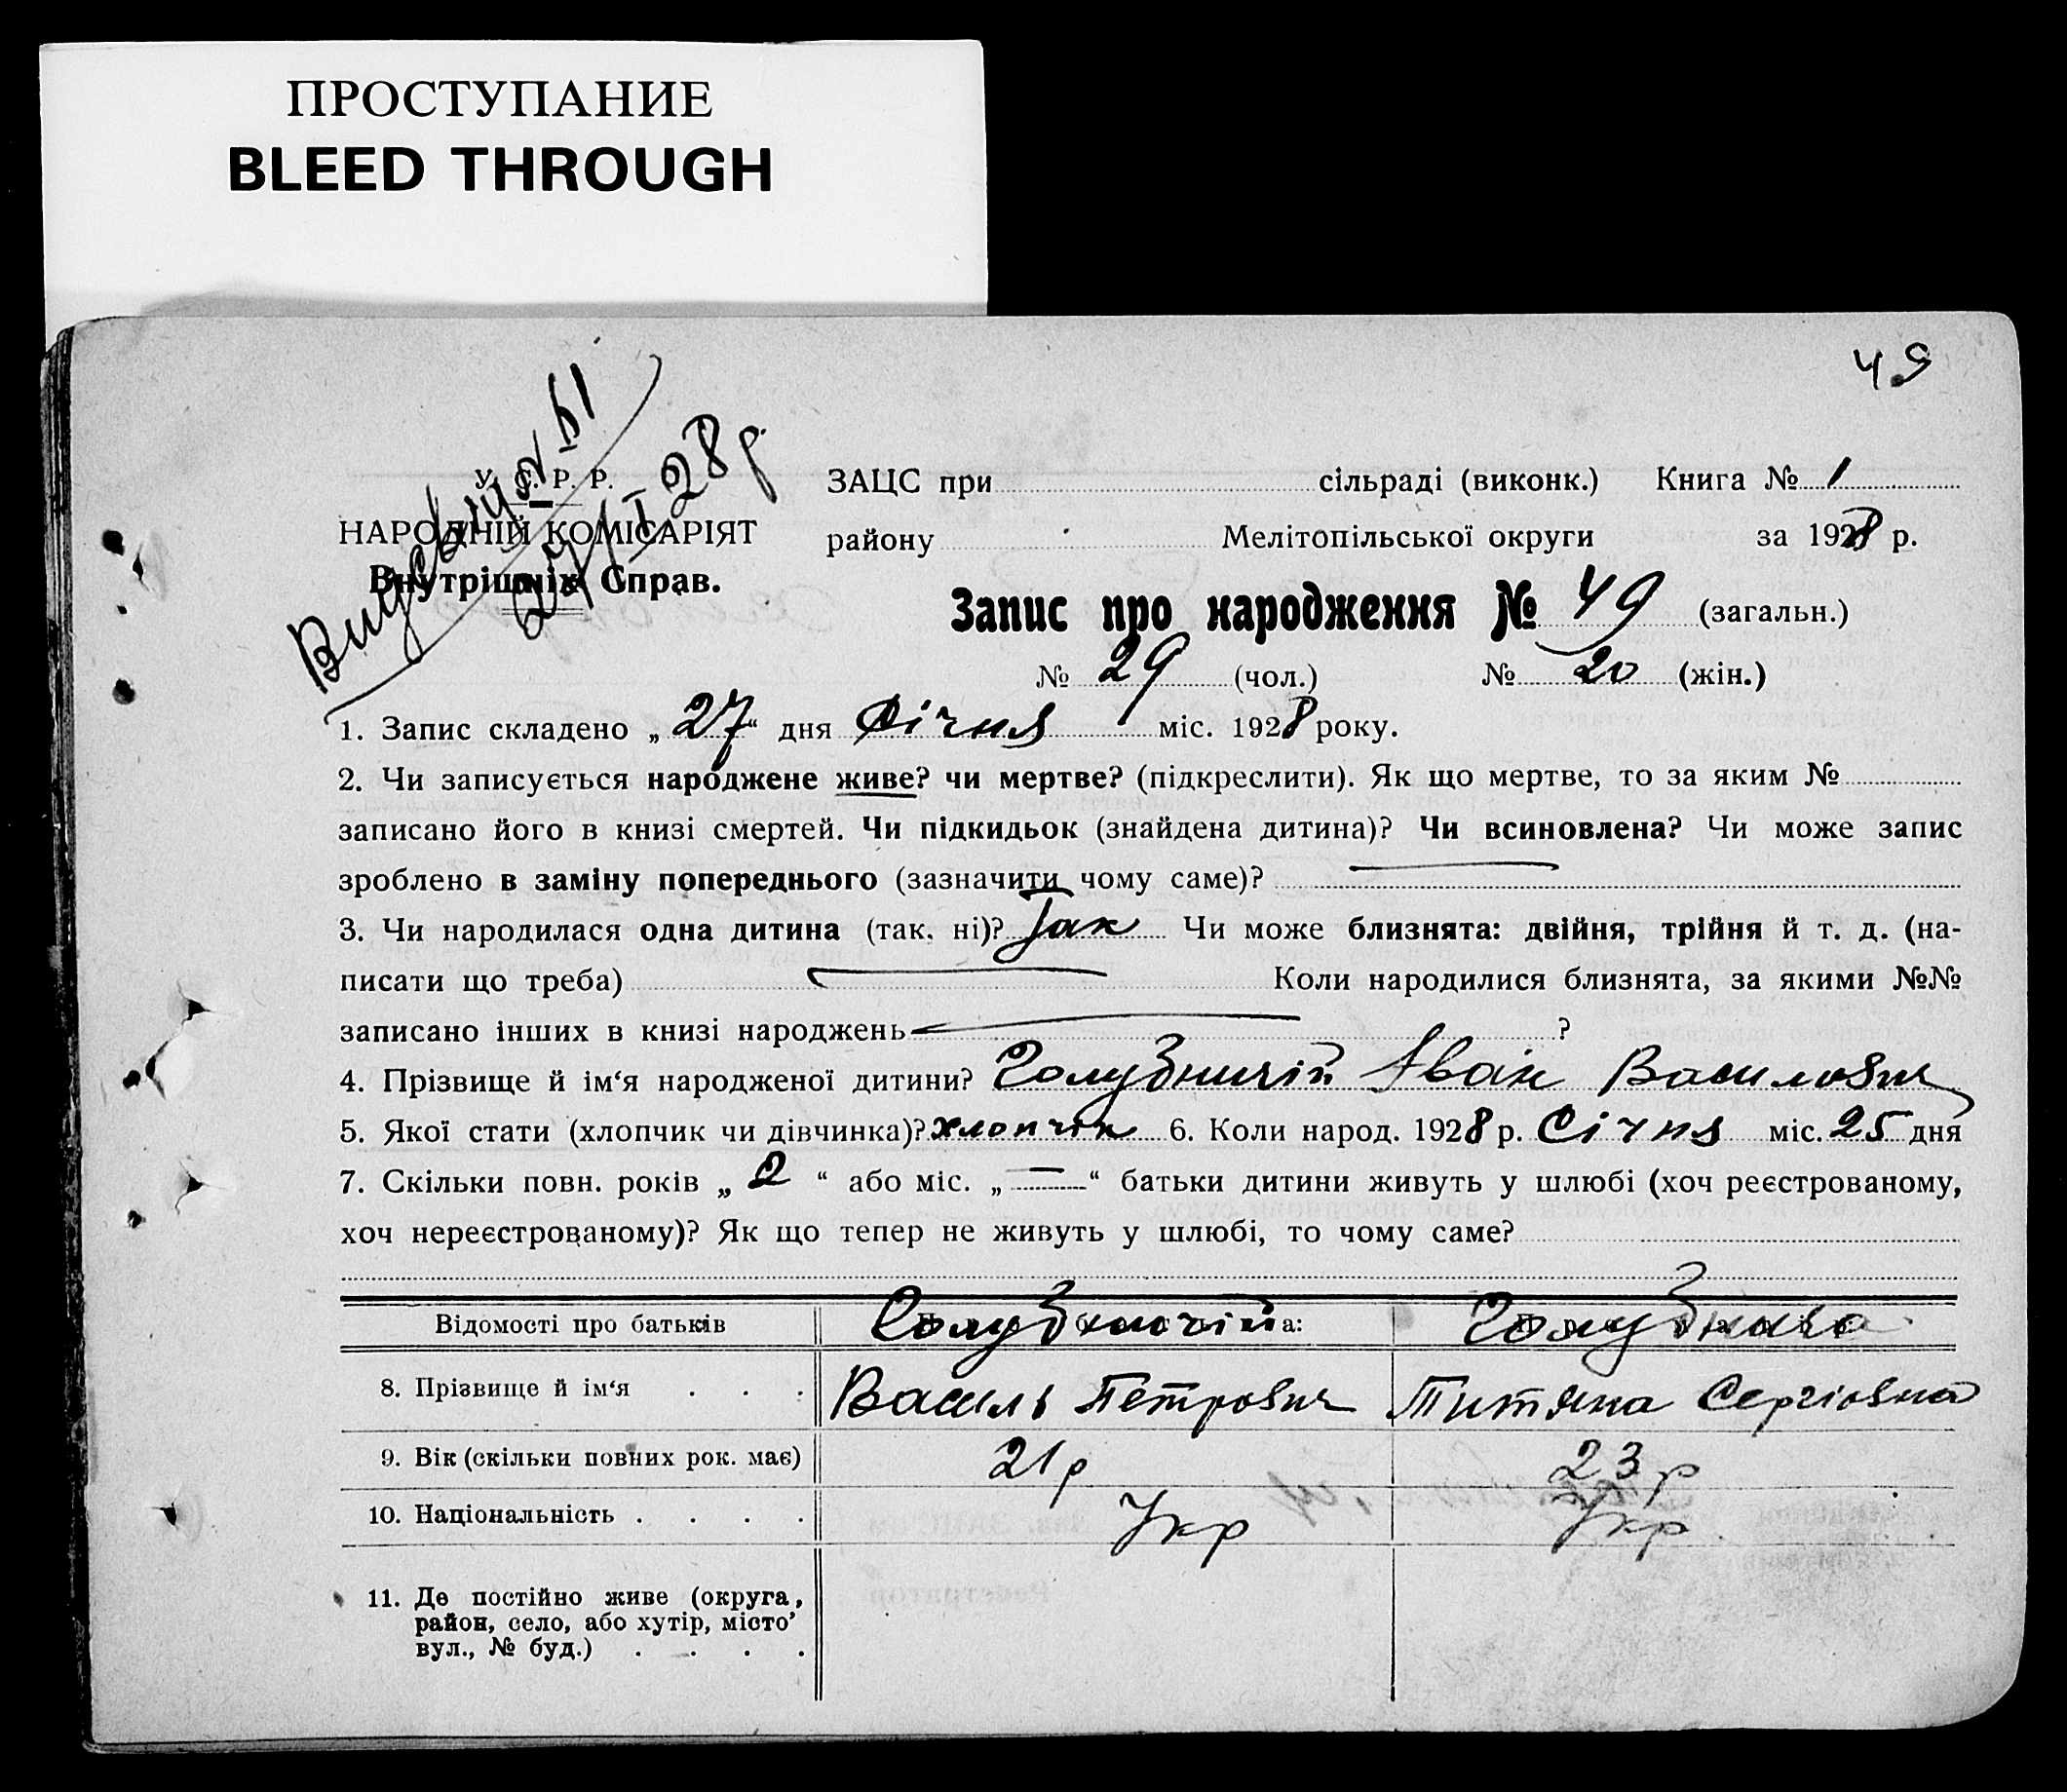 ПРОСТУПАНИЕ
BLEED THROUGH
49
27/I 28 р.
У. С. Р. Р.
НАРОДНІЙ КОМІСАРІЯТ
Внутрішніх Справ.
ЗАЦС при сільраді (виконк.) Книга № 1
району Мелітопільської округи за 1928 р.
Запис про народження № 49 (загальн.)
№ 29 (чол.) № 20 (жін.)
1. Запис складено „27“ дня Січня міс. 1928 року.
2. Чи записується народжене живе? чи мертве? (підкреслити). Як що мертве, то за яким №
записано його в книзі смертей. Чи підкидьок (знайдена дитина)? Чи всиновлена? Чи може запис
зроблено в заміну попереднього (зазначити чому саме)?
3. Чи народилася одна дитина (так, ні)? Так Чи може близнята: двійня, трійня й т. д. (на-
писати що треба) Коли народилися близнята, за якими №№
записано інших в книзі народжень ?
4. Прізвище й ім‘я народженої дитини? Голубничій Іван Василович
5. Якої стати (хлопчик чи дівчинка)? хлопчік 6. Коли народ. 1928 р. Січня міс. 25 дня
7. Скільки повн. років „2“ або міс. „—“ батьки дитини живуть у шлюбі (хоч реєстрованому,
хоч нереєстрованому)? Як що тепер не живуть у шлюбі, то чому саме?
Відомості про батьків Голубничій Голубнича
8. Прізвище й ім‘я . . . Василь Петрович Титяна Сергіовна
9. Вік (скільки повних рок. має) 21 р 23 р
10. Національність . . . . Укр Укр
11. Де постійно живе (округа,
район, село, або хутір, місто’
вул., № буд.) . . . .